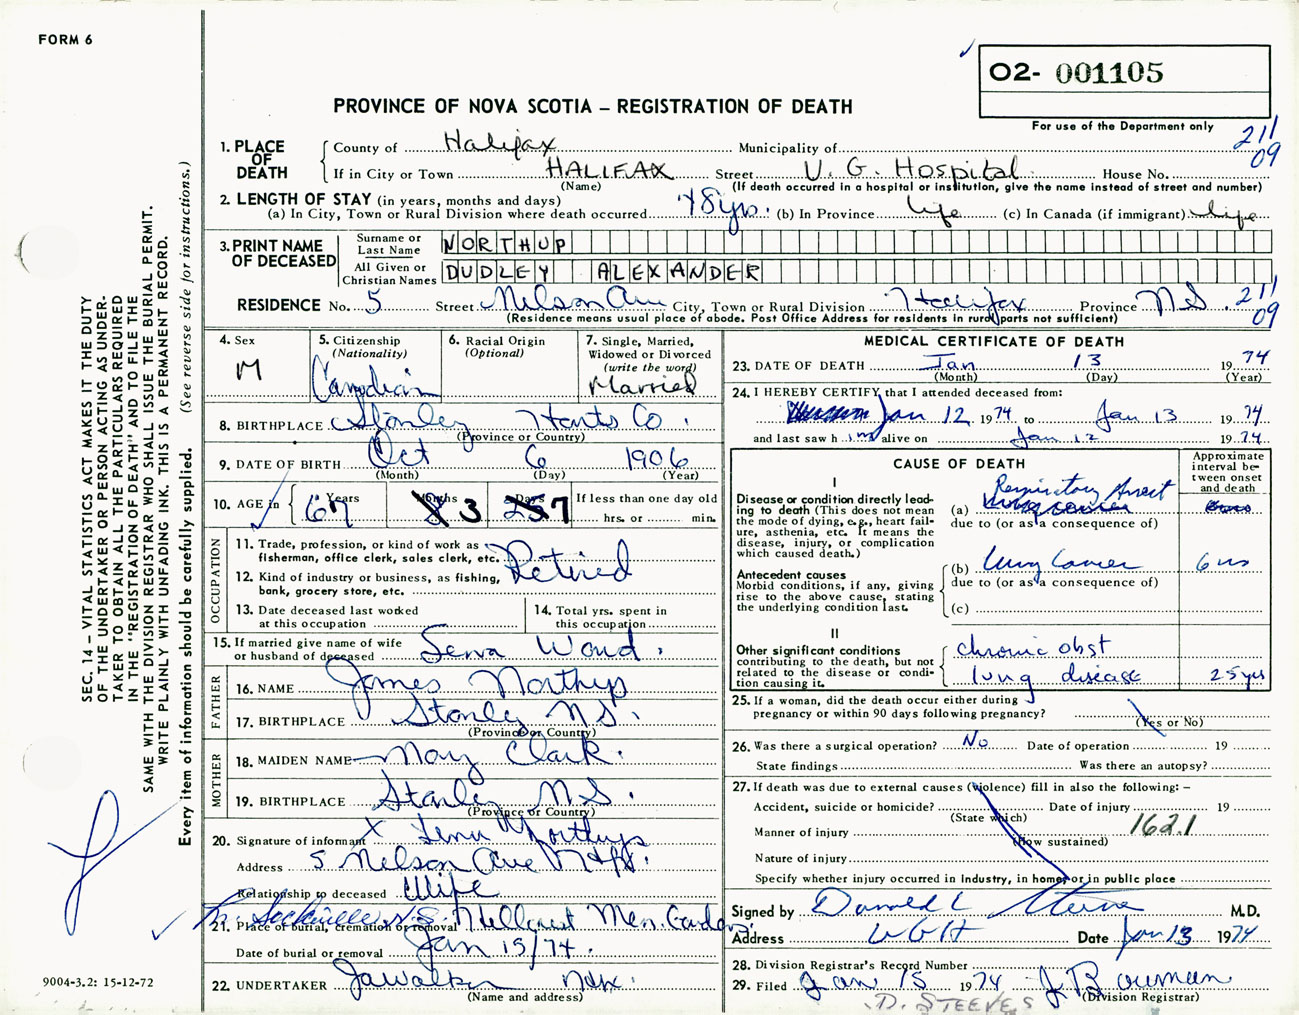 FORM 6
O2- 001105
PROVINCE OF NOVA SCOTIA – REGISTRATION OF DEATH
For use of the Department only
211
09
1. PLACE OF DEATH
County of Halifax Municipality of
If in City or Town HALIFAX Street V. G. Hospital House No.
(Name) (If death occurred in a hospital or institution, give the name instead of street and number)
2. LENGTH OF STAY (in years, months and days)
(a) In City, Town or Rural Division where death occurred 48 yrs. (b) In Province life (c) In Canada (if immigrant) life
3. PRINT NAME OF DECEASED
Surname or Last Name NORTHUP
All Given or Christian Names DUDLEY ALEXANDER
RESIDENCE No. 5 Street Nelson Ave City, Town or Rural Division Halifax Province N S. 211
09
(Residence means usual place of abode. Post Office Address for residents in rural parts not sufficient)
4. Sex
M
5. Citizenship
(Nationality)
Canadian
6. Racial Origin
(Optional)
7. Single, Married, Widowed or Divorced
(write the word)
Married
8. BIRTHPLACE Stanley Hants Co.
(Province or Country)
9. DATE OF BIRTH Oct 6 1906
(Month) (Day) (Year)
10. AGE in Years Months Days If less than one day old
67 3 7 hrs. or min.
OCCUPATION
11. Trade, profession, or kind of work as fisherman, office clerk, sales clerk, etc. Retired
12. Kind of industry or business, as fishing, bank, grocery store, etc.
13. Date deceased last worked at this occupation
14. Total yrs. spent in this occupation
15. If married give name of wife or husband of deceased Wood.
FATHER
16. NAME James Northup
17. BIRTHPLACE Stanley N S.
(Province or Country)
MOTHER
18. MAIDEN NAME May Clark.
19. BIRTHPLACE Stanley N S.
(Province or Country)
20. Signature of informant x Northup
Address 5 Nelson Ave Hfx.
Relationship to deceased Wife
21. Place of burial, cremation or removal Sackville N.S. Hillcrest Mem. Gardens
Date of burial or removal Jan 15/74.
22. UNDERTAKER Hfx.
(Name and address)
MEDICAL CERTIFICATE OF DEATH
23. DATE OF DEATH Jan 13 1974
(Month) (Day) (Year)
24. I HEREBY CERTIFY that I attended deceased from:
Jan 12 1974 to Jan 13 1974
and last saw him alive on Jan 12 1974
CAUSE OF DEATH
Approximate interval between onset and death
I
Disease or condition directly leading to death (This does not mean the mode of dying, e.g., heart failure, asthenia, etc. It means the disease, injury, or complication which caused death.)
(a) Respiratory Arrest
due to (or as a consequence of)
Antecedent causes
Morbid conditions, if any, giving rise to the above cause, stating the underlying condition last.
(b) Lung Cancer
due to (or as a consequence of)
(c)
II
Other significant conditions contributing to the death, but not related to the disease or condition causing it.
chronic obst
lung disease 25 yrs
25. If a woman, did the death occur either during pregnancy or within 90 days following pregnancy?
(Yes or No)
26. Was there a surgical operation? No Date of operation 19
State findings Was there an autopsy?
27. If death was due to external causes (violence) fill in also the following: –
Accident, suicide or homicide? Date of injury 19
(State which)
Manner of injury 1621
(How sustained)
Nature of injury
Specify whether injury occurred in Industry, in home, or in public place
Signed by Donald M.D.
Address V G H Date Jan 13 1974
28. Division Registrar's Record Number
29. Filed Jan 15 1974 J. Bowman
(Division Registrar)
D. STEEVES
SEC. 14 – VITAL STATISTICS ACT MAKES IT THE DUTY
OF THE UNDERTAKER OR PERSON ACTING AS UNDERTAKER TO OBTAIN ALL THE PARTICULARS REQUIRED
IN THE "REGISTRATION OF DEATH" AND TO FILE THE
SAME WITH THE DIVISION REGISTRAR WHO SHALL ISSUE THE BURIAL PERMIT.
WRITE PLAINLY WITH UNFADING INK. THIS IS A PERMANENT RECORD.
Every item of information should be carefully supplied. (See reverse side for instructions.)
9004-3.2: 15-12-72